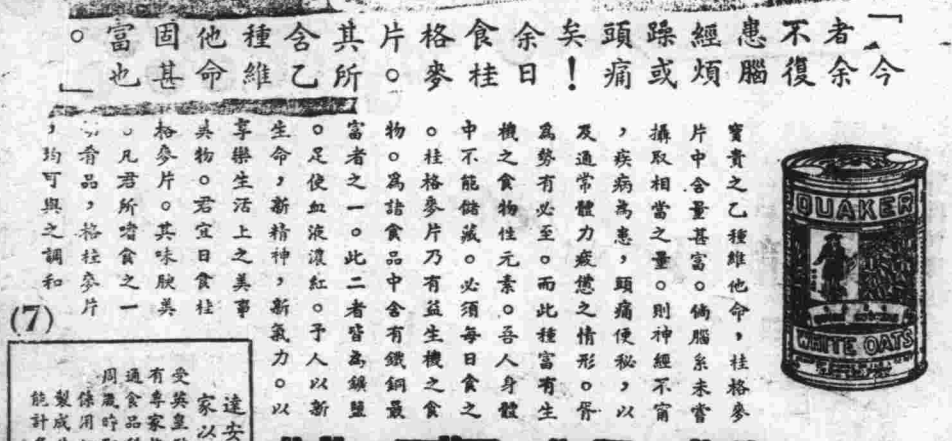 「今
者余
不復
患腦
經煩
躁或
頭痛
矣！
余日
食桂
格麥
片。
其所
含乙
種維
他命
固甚
富也
。」
寶貴之乙種維他命，桂格麥
片中含量甚富。倘腦系未嘗
攝取相當之量。則神經不甯
，疾病為患，頭痛便秘，以
及通常體力疲憊之情形。胥
為勢有必至。而此種富有生
機之食物性元素。吾人身體
中不能儲藏。必須每日食之
。桂格麥片乃有益生機之食
物。為諸食品中含有鐵銅最
富者之一。此二者皆為鑛鹽
。足使血液濃紅。予人以新
生命，新精神，新氣力。以
享樂生活上之美事
美物。君宜日食桂
格麥片。其味腴美
。凡君所嗜食之一
切肴品，格桂麥片
，均可與之調和
QUAKER
WHITE OATS
(7)
達安
家以
受英皇
有專家
通食品
周歲時
係用
製成
能計